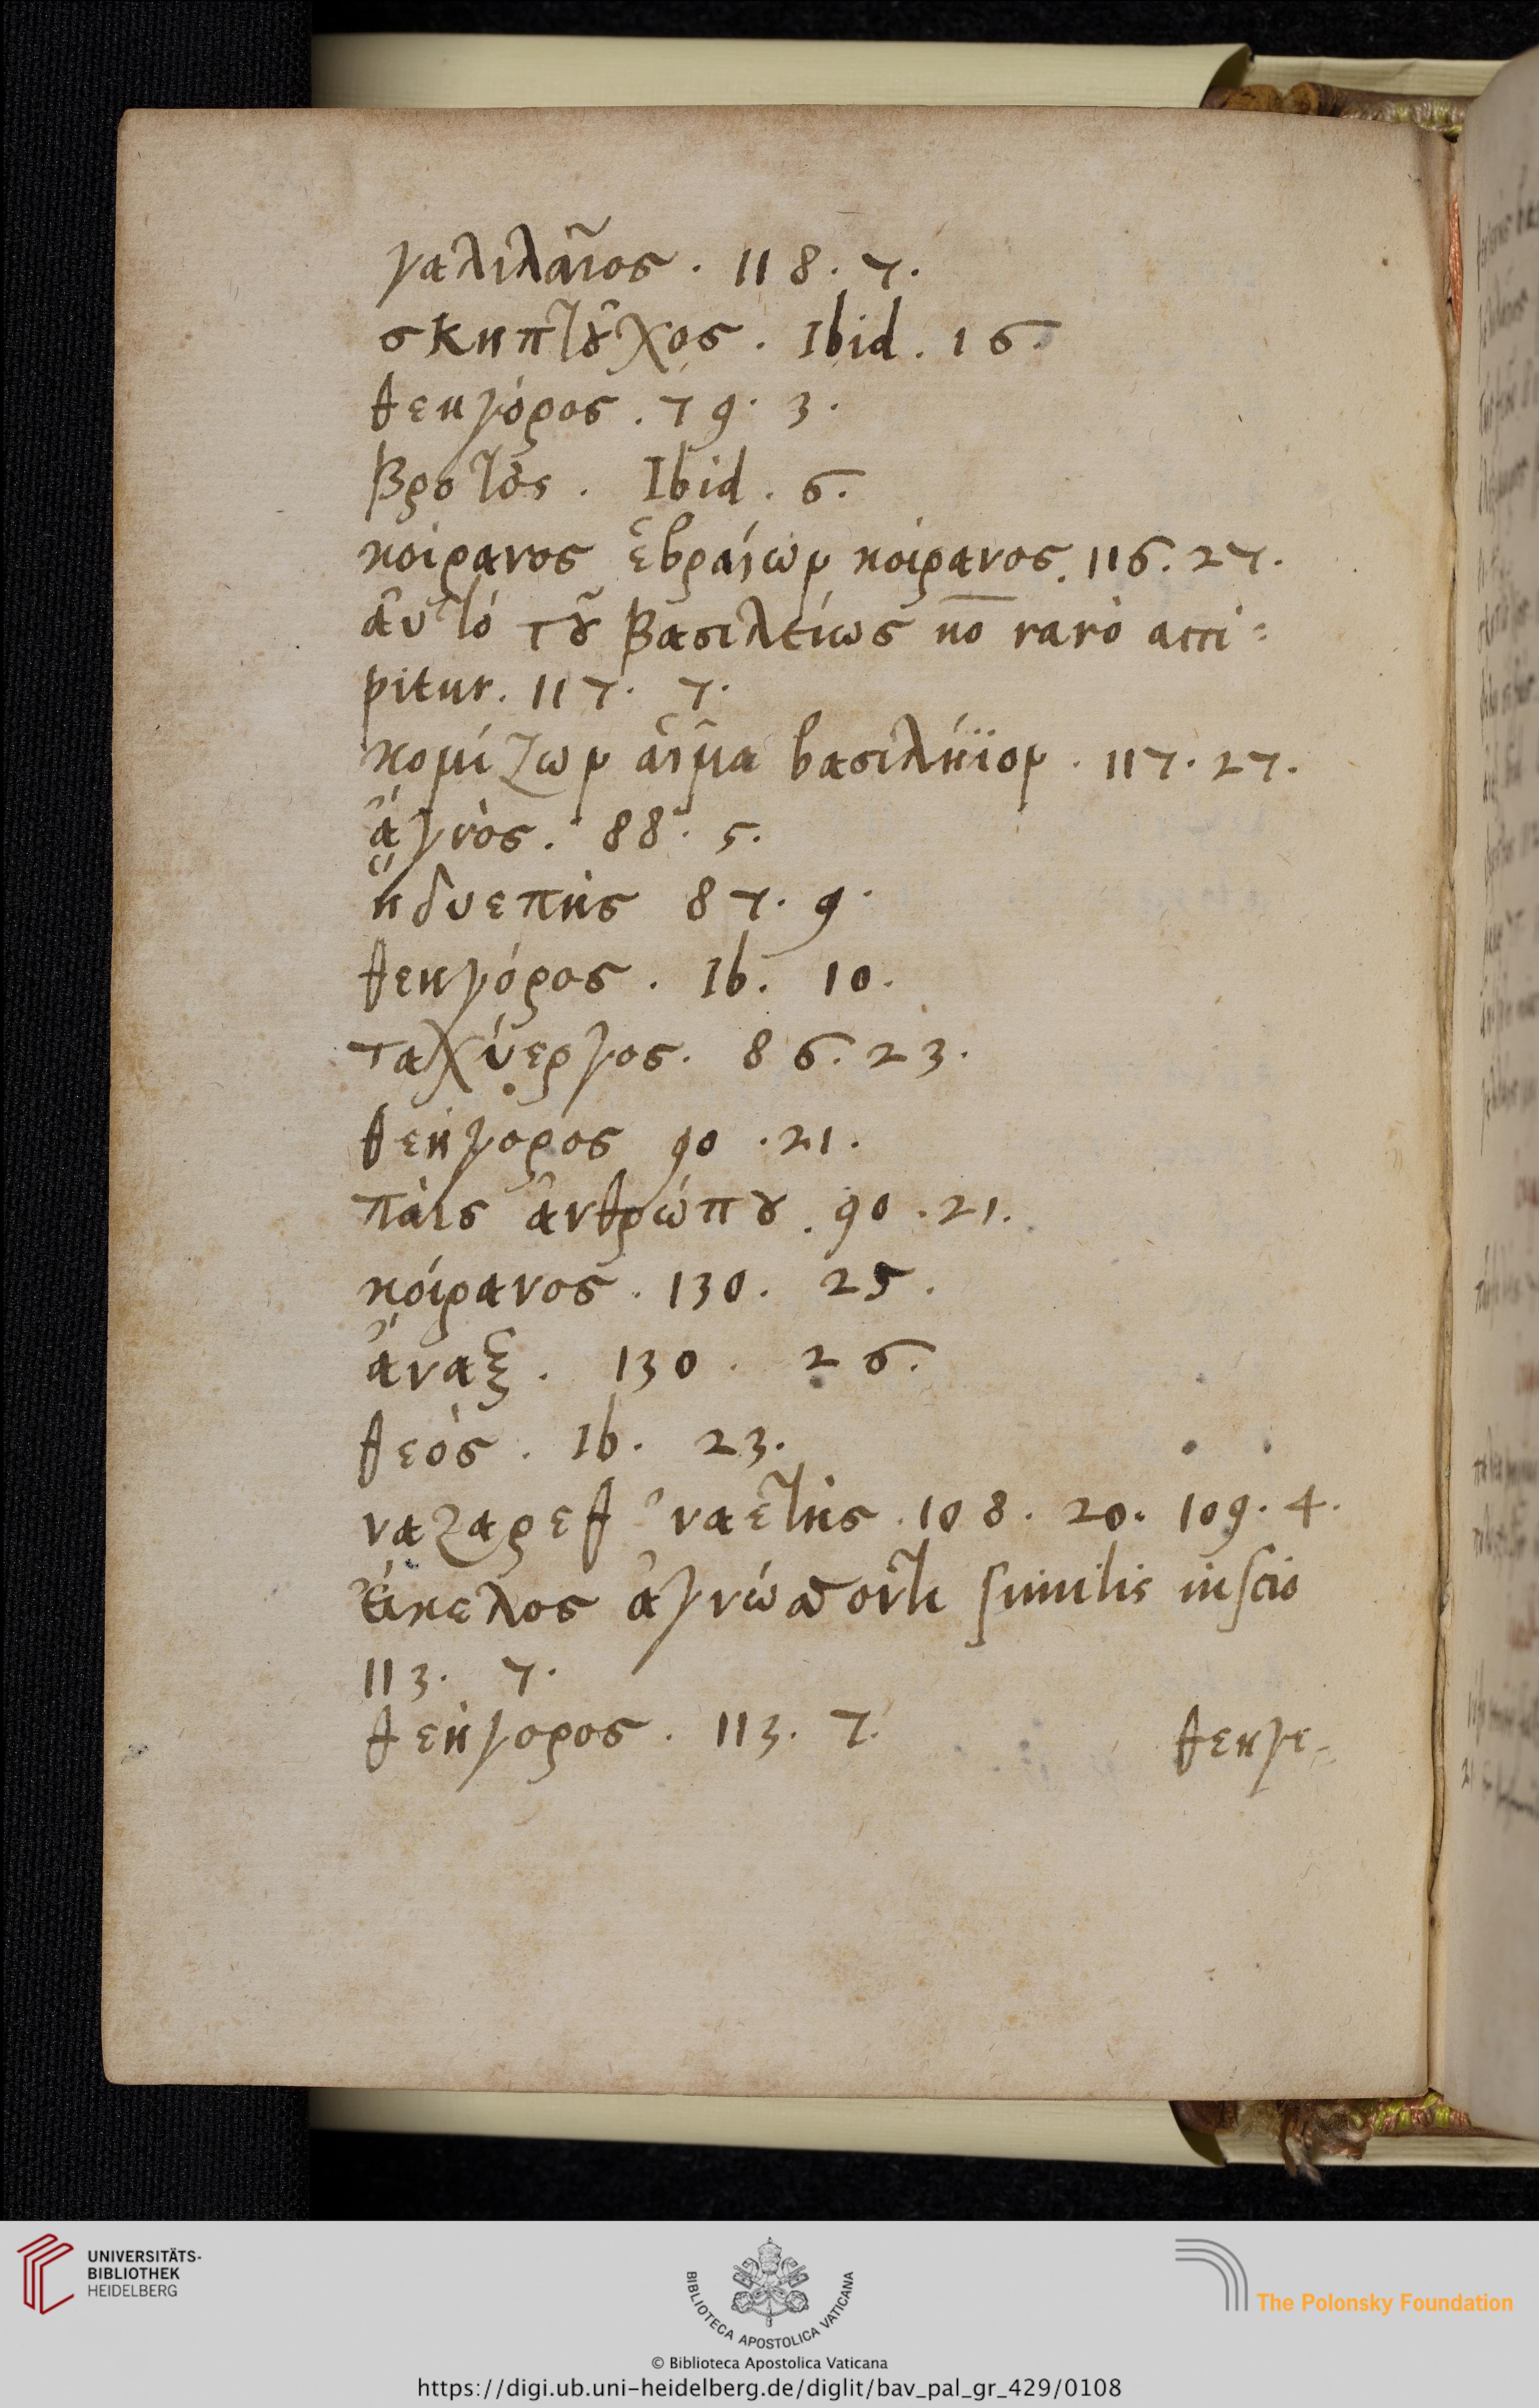 γαλιλαῖος . 118. 7.
σκηπτοῦχος . Ibid . 16.
θεηγόρος . 79. 3.
Βροτὸς . Ibid . 6.
κοίρανος ἑβραίων κοίρανος. 116. 27.
ἀυτό τοῦ Βασιλείως nō rarò acci=
pitur. 117. 7.
κομίζων αἷμα βασιλήϊον . 117. 27.
ἄγνὸς. 88. 5.
ἥδυεπὴς 87. 9.
θεηγόρος . Ib. 10.
ταχύεργος. 86. 23.
θεήγορος 90 .21.
πάις ἀνθρώπου . 90 .21.
κόιρανος . 130. 25.
ἄναξ . 130 . 26.
θεὸς . Ib. 23.
ναζαρεθ ναετὴς .108. 20. 109. 4.
ἔικελος ἀγνώσσοντι similis inscio
113. 7.
θεήγορος . 113. 7.
θεηγε-
UNIVERSITÄTS-
BIBLIOTHEK
HEIDELBERG
BIBLIOTECA APOSTOLICA VATICANA
The Polonsky Foundation
© Biblioteca Apostolica Vaticana
https://digi.ub.uni-heidelberg.de/diglit/bav_pal_gr_429/0108